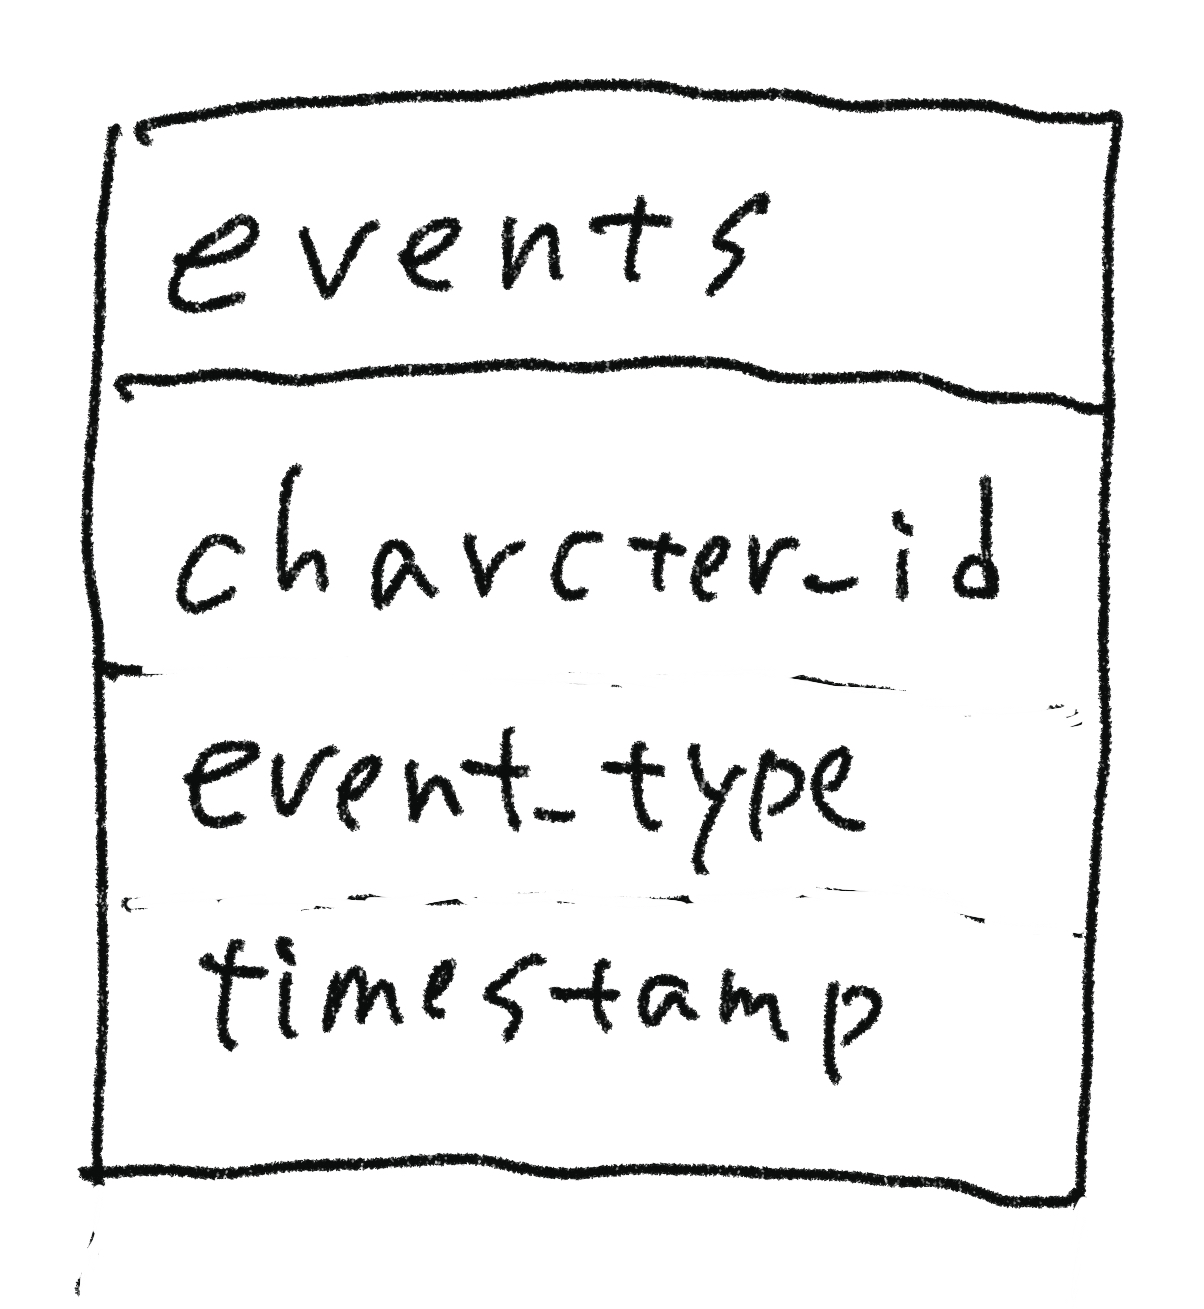 events
charcter_id
event_type
timestamp